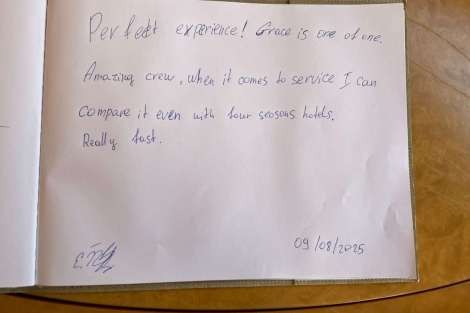 Perfect experience! Grace is one of one.
Amazing crew, when it comes to service I can
compare it even with four seasons hotels.
Really fast.
09/08/2025